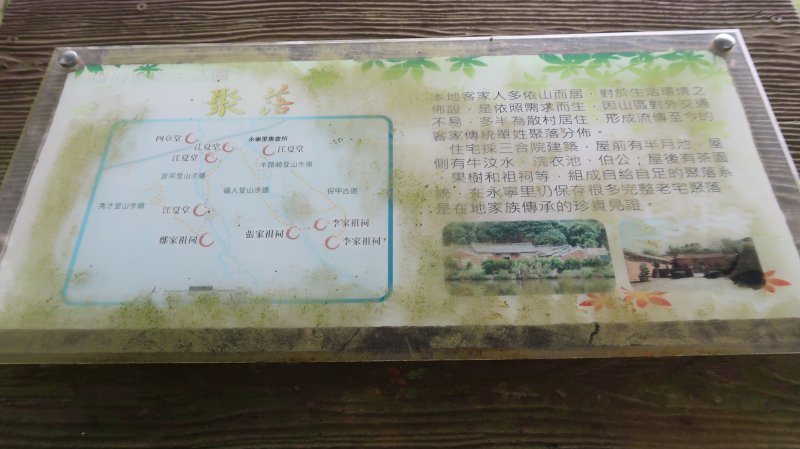 聚落
四草堂
江夏堂
江夏堂
永寧里集會所
江夏堂
牛路崎登山步道
苦茶登山步道
福人登山步道
保甲古道
秀才登山步道
江夏堂
鄭家祖祠
張家祖祠
李家祖祠
李家祖祠
本地客家人多依山而居，對於生活環境之
佈設，是依照需求而生，因山區對外交通
不易，多半為散村居住，形成流傳至今的
客家傳統單姓聚落分佈。
住宅採三合院建築，屋前有半月池，屋
側有牛汶水、浣衣池、伯公；屋後有茶園
、果樹和祖祠等，組成自給自足的聚落系
統，在永寧里仍保存很多完整老宅聚落，
是在地家族傳承的珍貴見證。